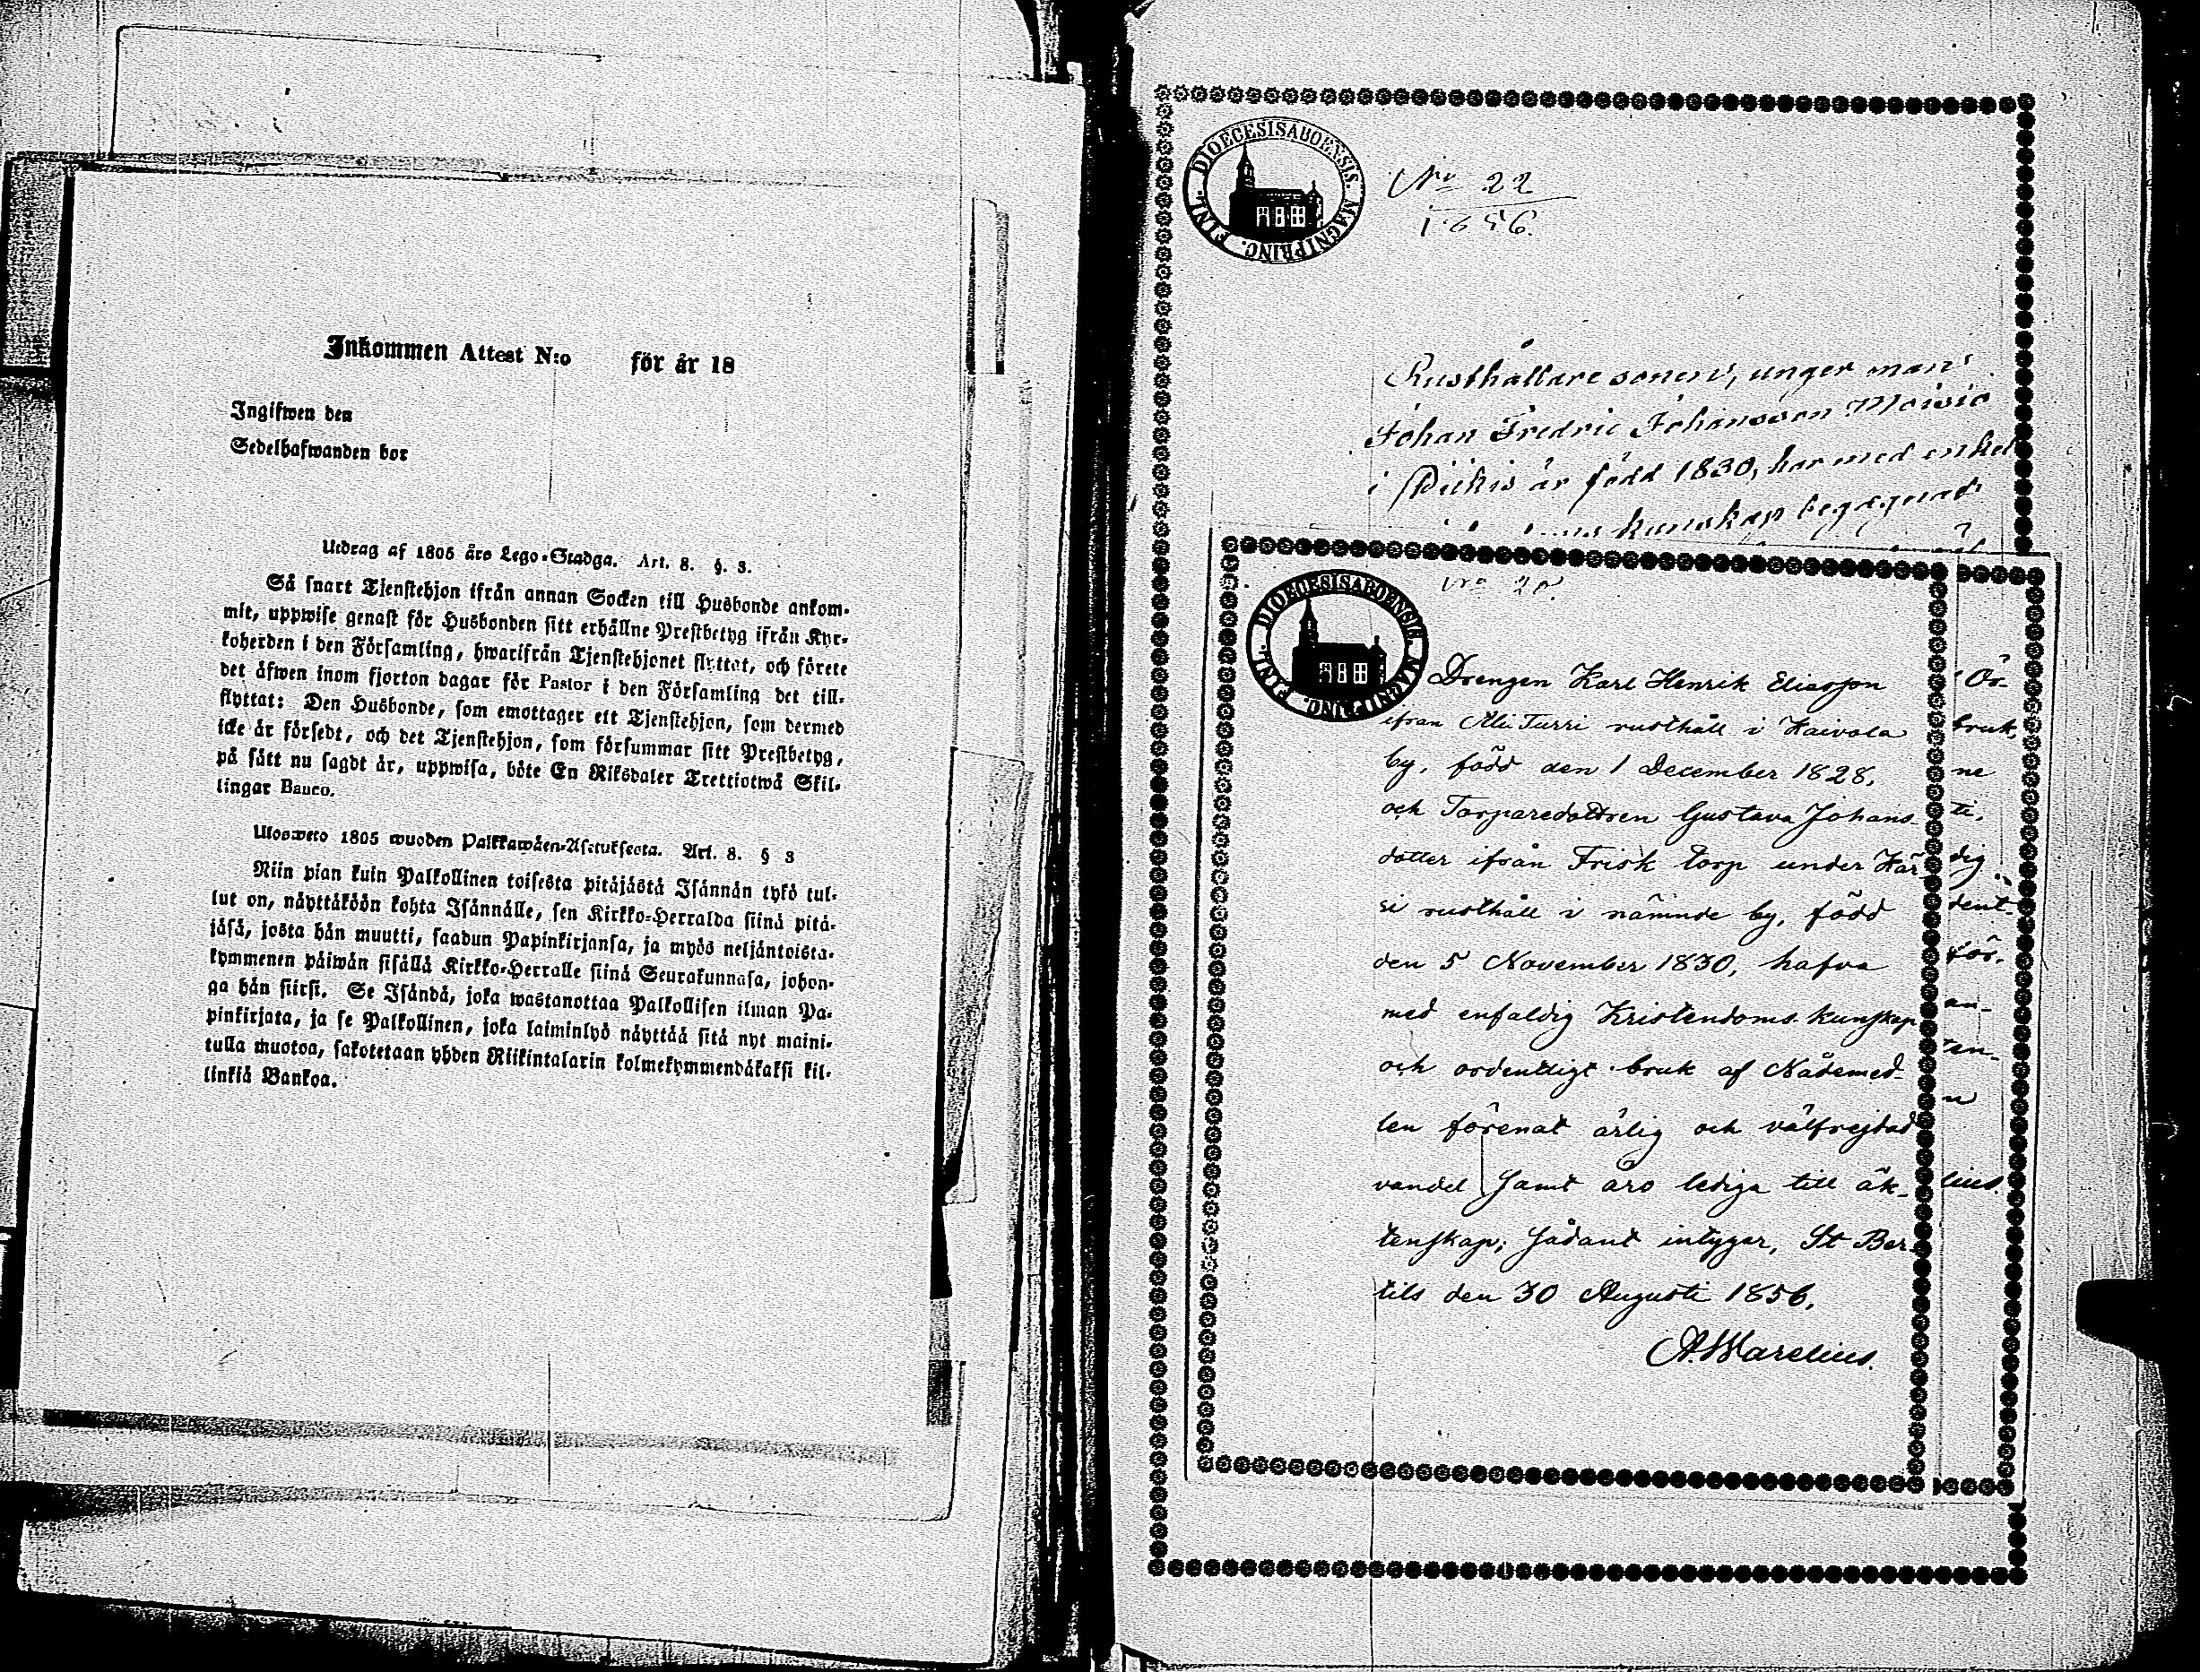 Inkommen Attest N:o för år 18
Ingifwen den
Sedelhafwanden bor
Utdrag af 1805 års Lego-Stadga. Art. 8. §. 3.
Så snart Tjenstehjon ifrån annan Socken till Husbonde ankom-
mit, uppwise genast för Husbonden sitt erhållne Prestbetyg ifrån Kyr-
koherden i den Församling, hwarifrån Tjenstehjonet flyttat, och förete
det äfwen inom fjorton dagar för Pastor i den Församling det till-
flyttat: Den Husbonde, som emottager ett Tjenstehjon, som dermed
icke är försedt, och det Tjenstehjon, som försummar sitt Prestbetyg,
på sätt nu sagdt är, uppwisa, böte En Riksdaler Trettiotwå Skil-
lingar Banco.
Ulosweto 1805 wuoden Palkkawäen-Asetuksesta. Art. 8. § 3
Niin pian kuin Palkollinen toisesta pitäjästä Isännän tykö tul-
lut on, näyttäköön kohta Isännälle, sen Kirkko-Herralda siinä pitä-
jäsä, josta hän muutti, saadun Papinkirjansa, ja myös neljäntoista-
kymmenen päiwän sisällä Kirkko-Herralle siinä Seurakunnasa, johon-
ga hän siirsi. Se Isändä, joka wastanottaa Palkollisen ilman Pa-
pinkirjata, ja se Palkollinen, joka laiminlyö näyttää sitä nyt maini-
tulla muotoa, sakotetaan yhden Riikintalarin kolmekymmendäkaksi kil-
linkiä Bankoa.
DIOECESIS ABOENSIS. MAGNI PRINC. FINL.
No 22
1856.
Rusthållare sonen, unger man
Johan Fredric Johansson Moisio
i är född 1830, har med enkel
kunskap begagnat
DIOECESIS ABOENSIS. MAGNI PRINC. FINL.
No
Drengen Karl Henrik Eliasson
ifrån Ali Turri rusthåll i Kaivola
by, född den 1 December 1828,
och Torparedottren Gustava Johans
dotter ifrån Frisk torp under Här
si rusthåll i nämnde by, född
den 5 November 1830, hafva
med enfaldig Kristendoms-kunskap
och ordentligt bruk af Nådemed-
len förenat ärlig och välfrejdad
vandel samt äro lediga till äk-
tenskap; sådant intygar, St Ber-
tils den 30 Augusti 1856.
A. Warelius.
Ör-
bruk,
ne
ti.
dig
dent-
för-
an-
ten-
n
lius.